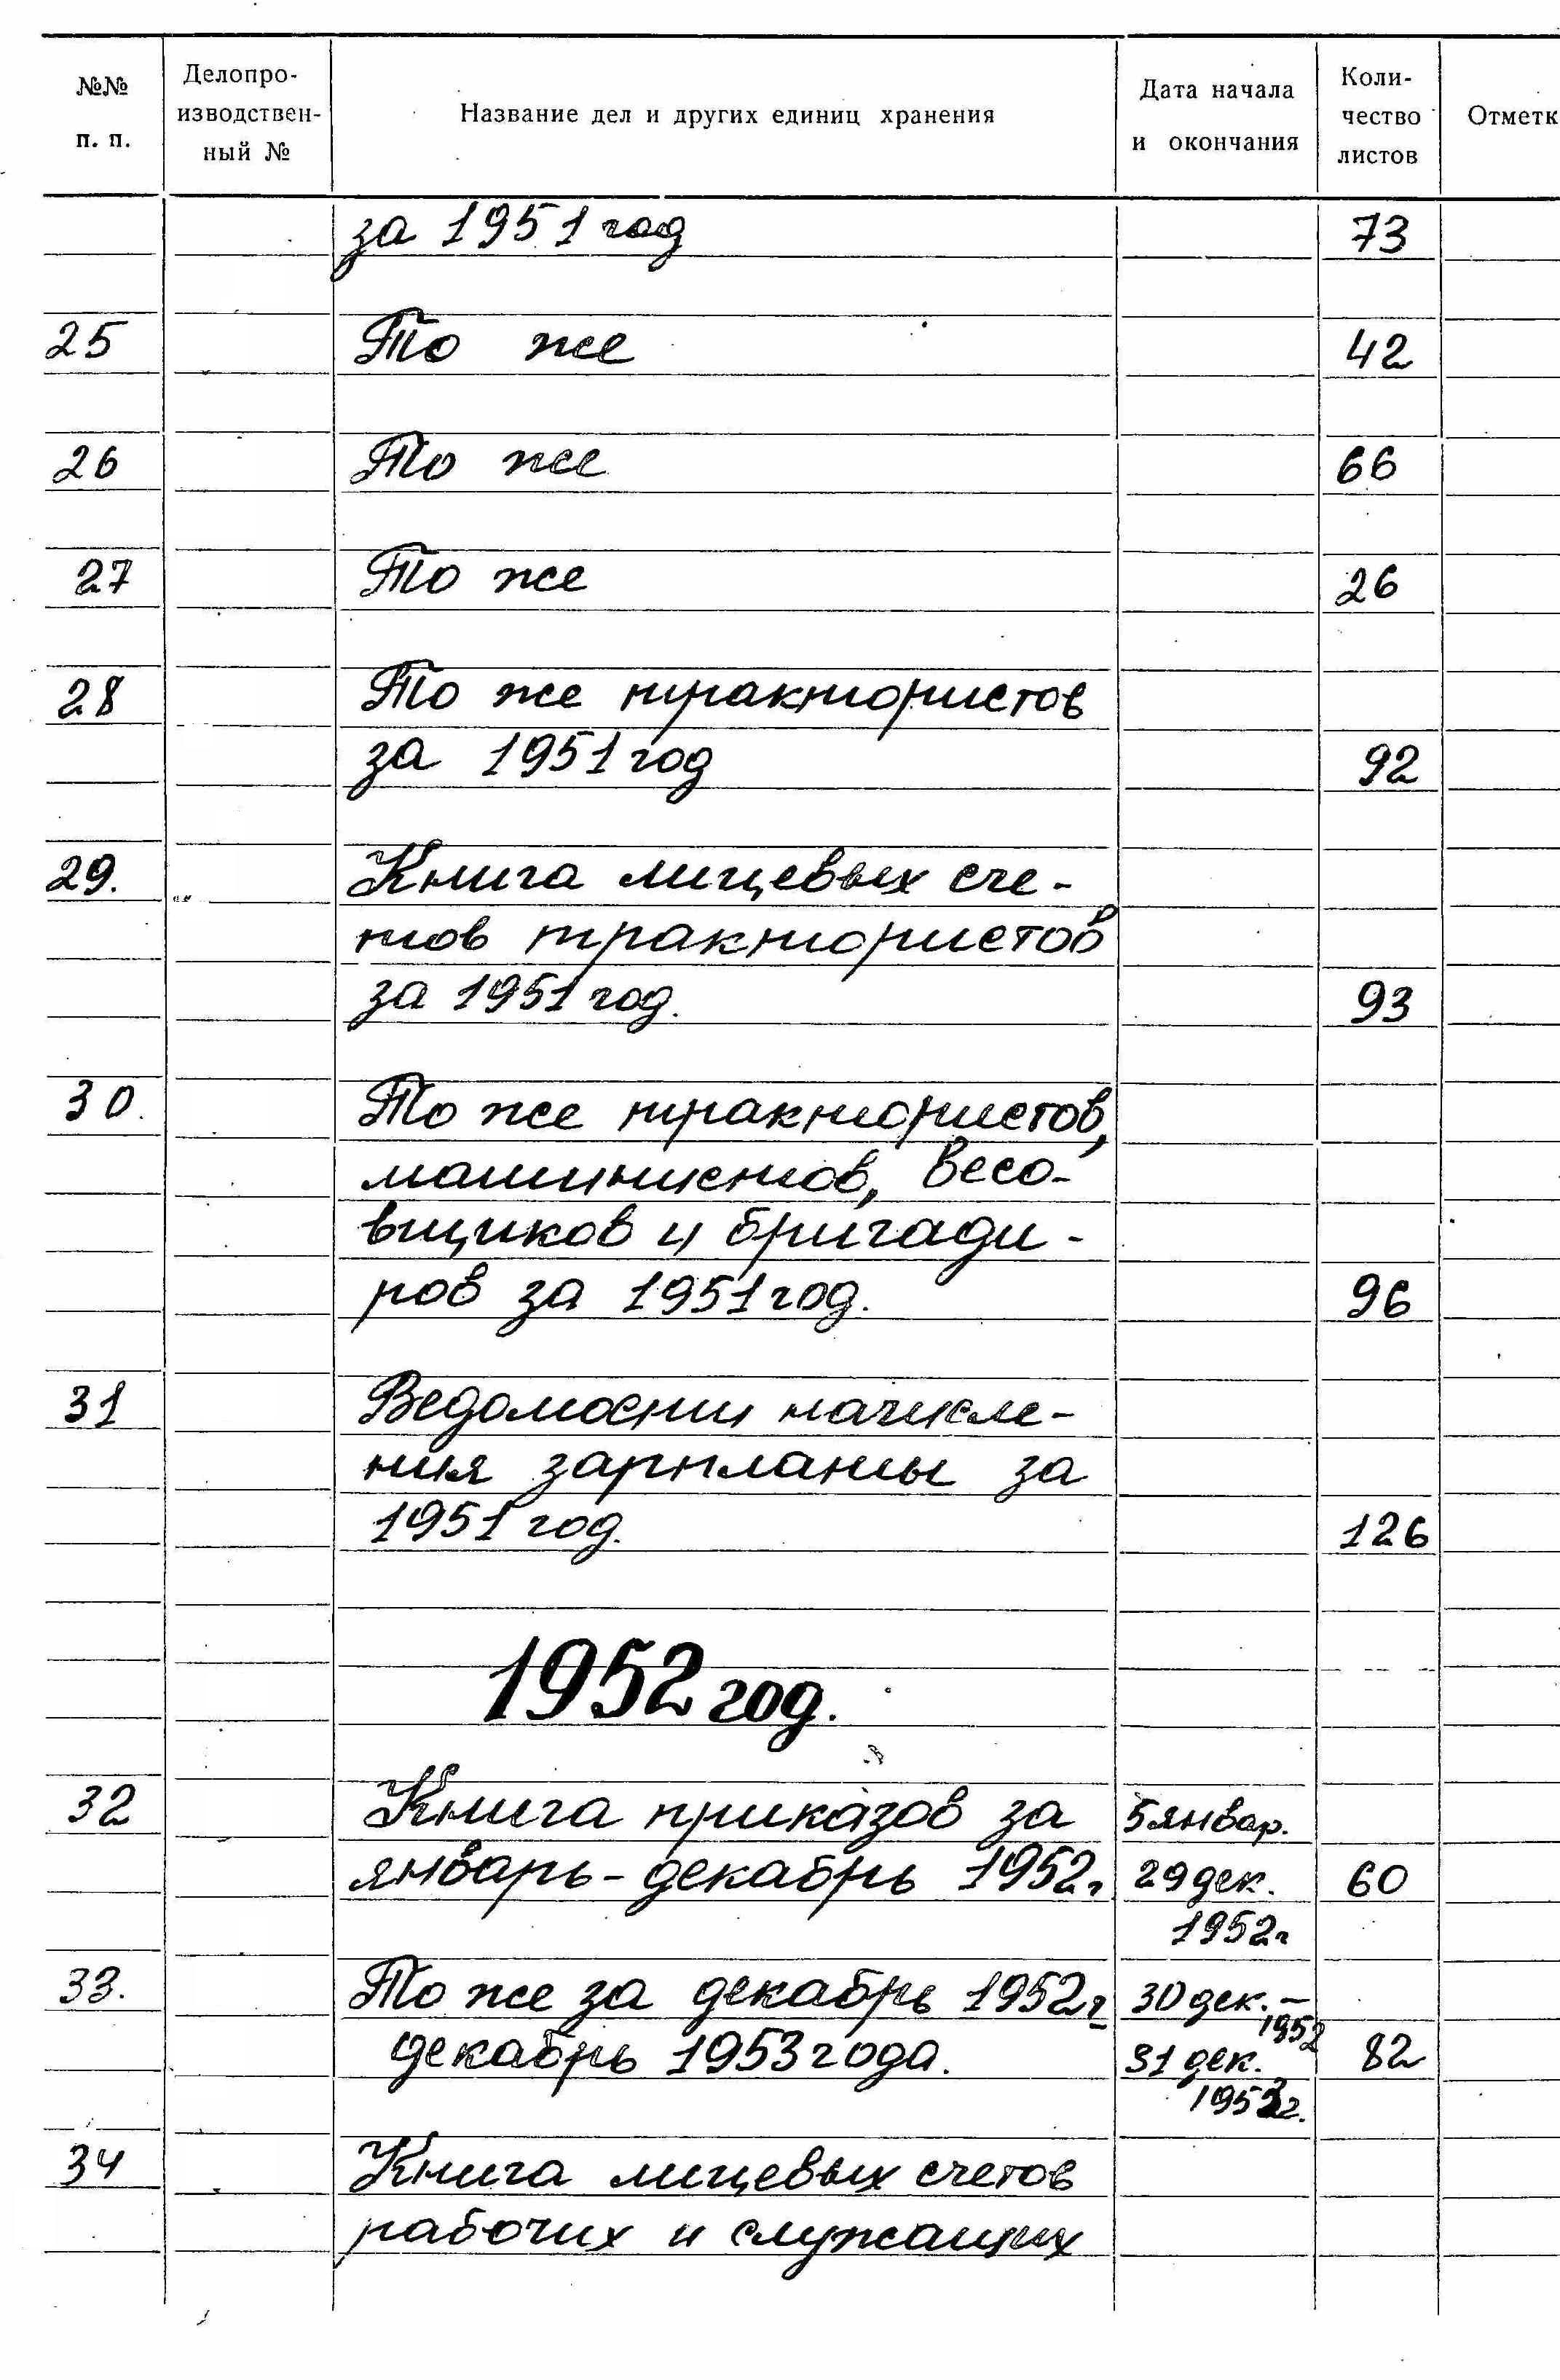 №№ п. п.
Делопро-
изводствен-
ный №
Название дел и других единиц хранения
Дата начала
и окончания
Коли-
чество
листов
Отметк
за 1951 год 73
25 То же 42
26 То же 66
27 То же 26
28 То же трактористов
за 1951 год 92
29. Книга лицевых сче-
тов трактористов
за 1951 год. 93
30. То же трактористов,
машинистов, весо-
вщиков и бригади-
ров за 1951 год. 96
31 Ведомости начисле-
ния зарплаты за
1951 год. 126
1952 год.
32 Книга приказов за 5 январ.
январь-декабрь 1952г 29 дек. 60
1952г
33. То же за декабрь 1952г- 30 дек.-
1952
декабрь 1953 года. 31 дек. 82
1953г.
34 Книга лицевых счетов
рабочих и служащих